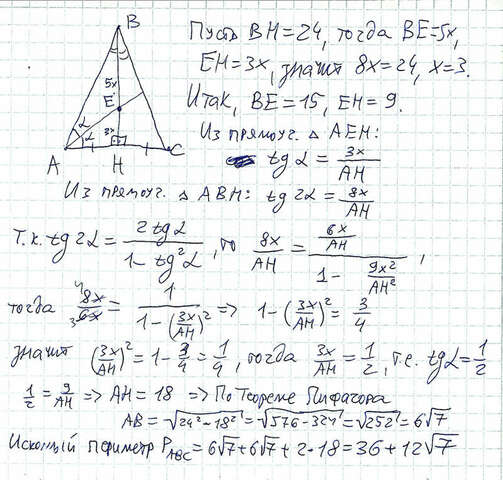 B
5x
E
α
α
3x
A
H
C
Пусть BH=24, тогда BE=5x,
EH=3x, значит 8x=24, x=3.
Итак, BE=15, EH=9.
Из прямоуг. △ AEH:
tg α = 3x/AH
Из прямоуг. △ ABH: tg 2α = 8x/AH
Т.к. tg 2α = 2 tg α/(1 - tg²α), то 8x/AH = (6x/AH)/(1 - 9x²/AH²),
тогда 4 8x/3 6x = 1/(1 - (3x/AH)²) => 1 - (3x/AH)² = 3/4
значит (3x/AH)² = 1 - 3/4 = 1/4, тогда 3x/AH = 1/2, т.е. tg α = 1/2
1/2 = 9/AH => AH = 18 => По Теореме Пифагора
AB = √(24² - 18²) = √(576 - 324) = √252 = 6√7
Искомый периметр P ABC = 6√7 + 6√7 + 2·18 = 36 + 12√7